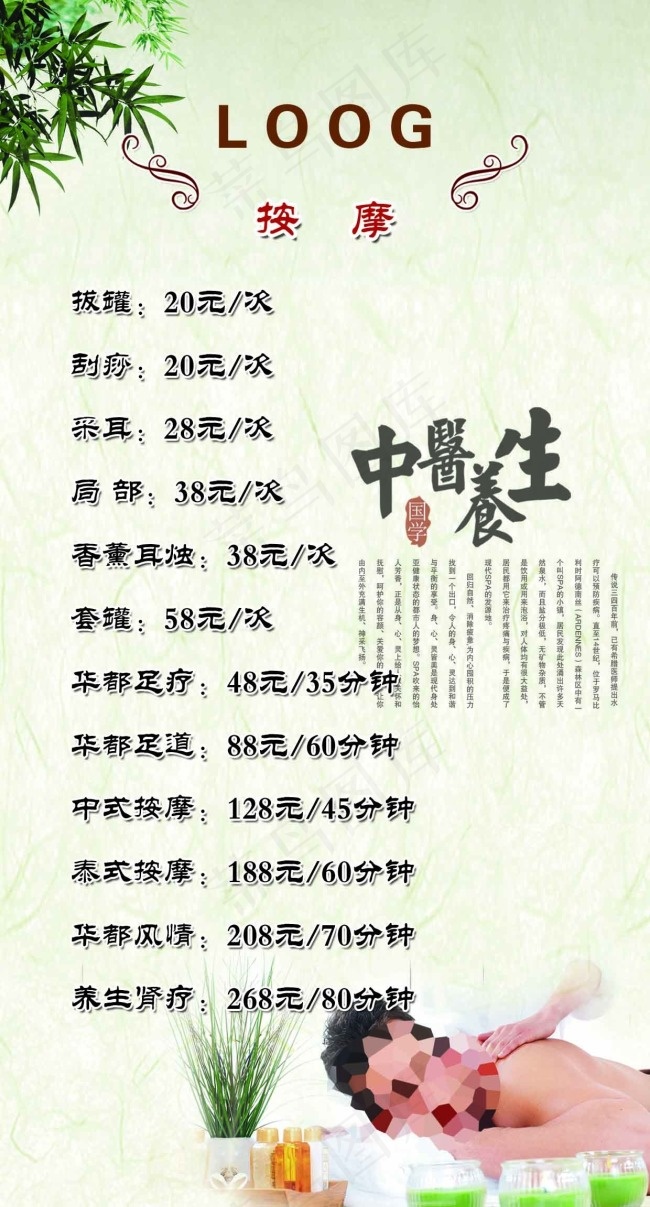 LOOG
按 摩
拔罐：20元/次
刮痧：20元/次
采耳：28元/次
局 部：38元/次
香薰耳烛：38元/次
套罐：58元/次
华都足疗：48元/35分钟
华都足道：88元/60分钟
中式按摩：128元/45分钟
泰式按摩：188元/60分钟
华都风情：208元/70分钟
养生肾疗：268元/80分钟
中醫養生
国学
传说三四百年前，已有希腊医师提出水
疗可以预防疾病，直至14世纪，位于罗马比
利时阿德南丝（ARDENNES）森林区中有一
个叫SPA的小镇，居民发现此处涌出许多天
然泉水，而且盐分极低，无矿物杂质，不管
是饮用或用来泡浴，对人体均有很大益处，
居民都用它来治疗疼痛与疾病，于是便成了
现代SPA的发源地。
回归自然、消除疲惫，为内心囤积的压力
找到一个出口，令人的身、心、灵达到和谐
与平衡的享受。身、心、灵皆美是现代身处
亚健康状态的都市人的梦想。SPA吹来的怡
人芳香，正是从身、心、灵上给
抚慰，呵护你的容颜、关爱你的
由内至外充满生机、神采飞扬。
菜鸟图库